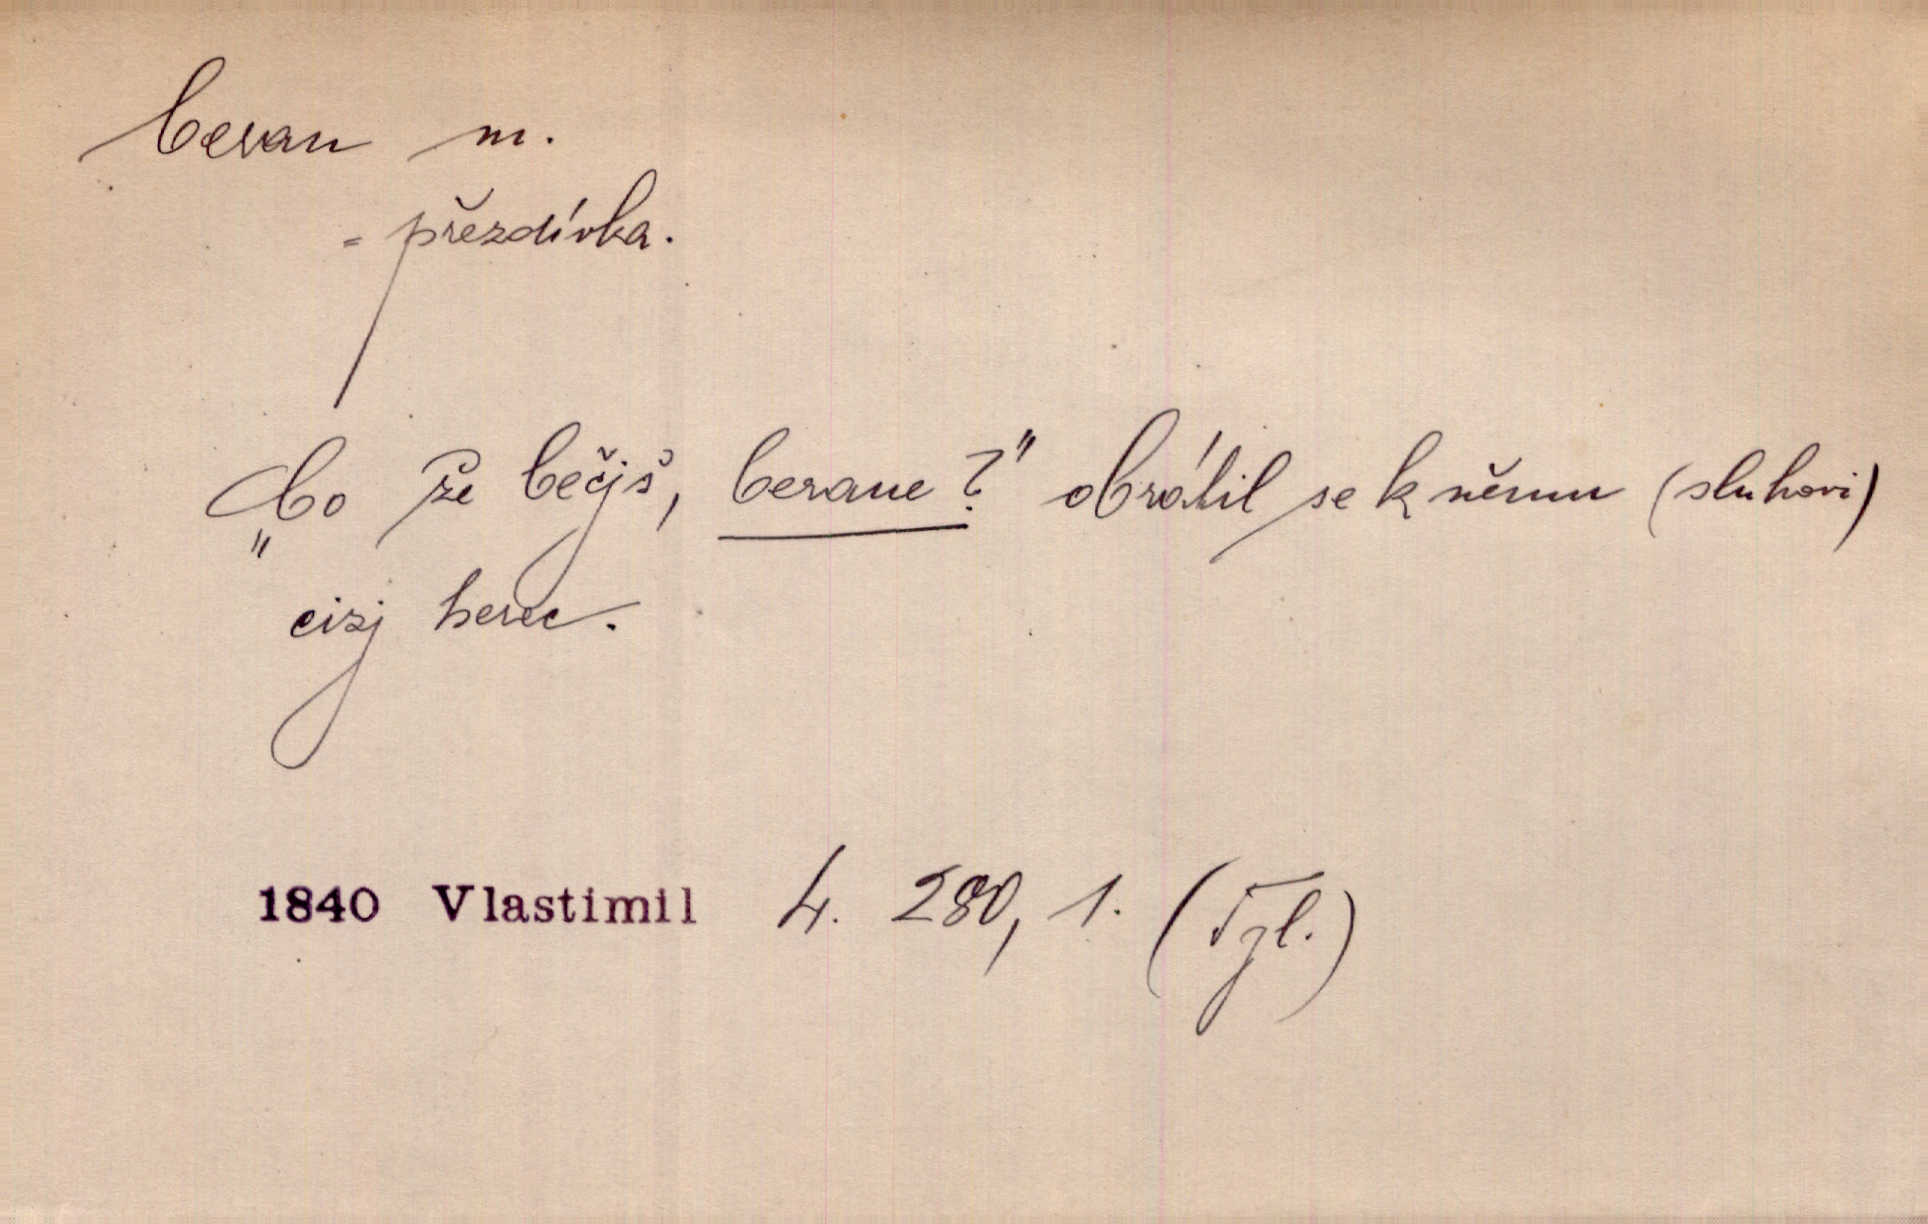 beran m.
= přezdívka.
„Co že bečjš, berane?" obrátil se k němu (sluhovi)
cizj herec.
1840 Vlastimil 4. 280, 1. (Tyl.)